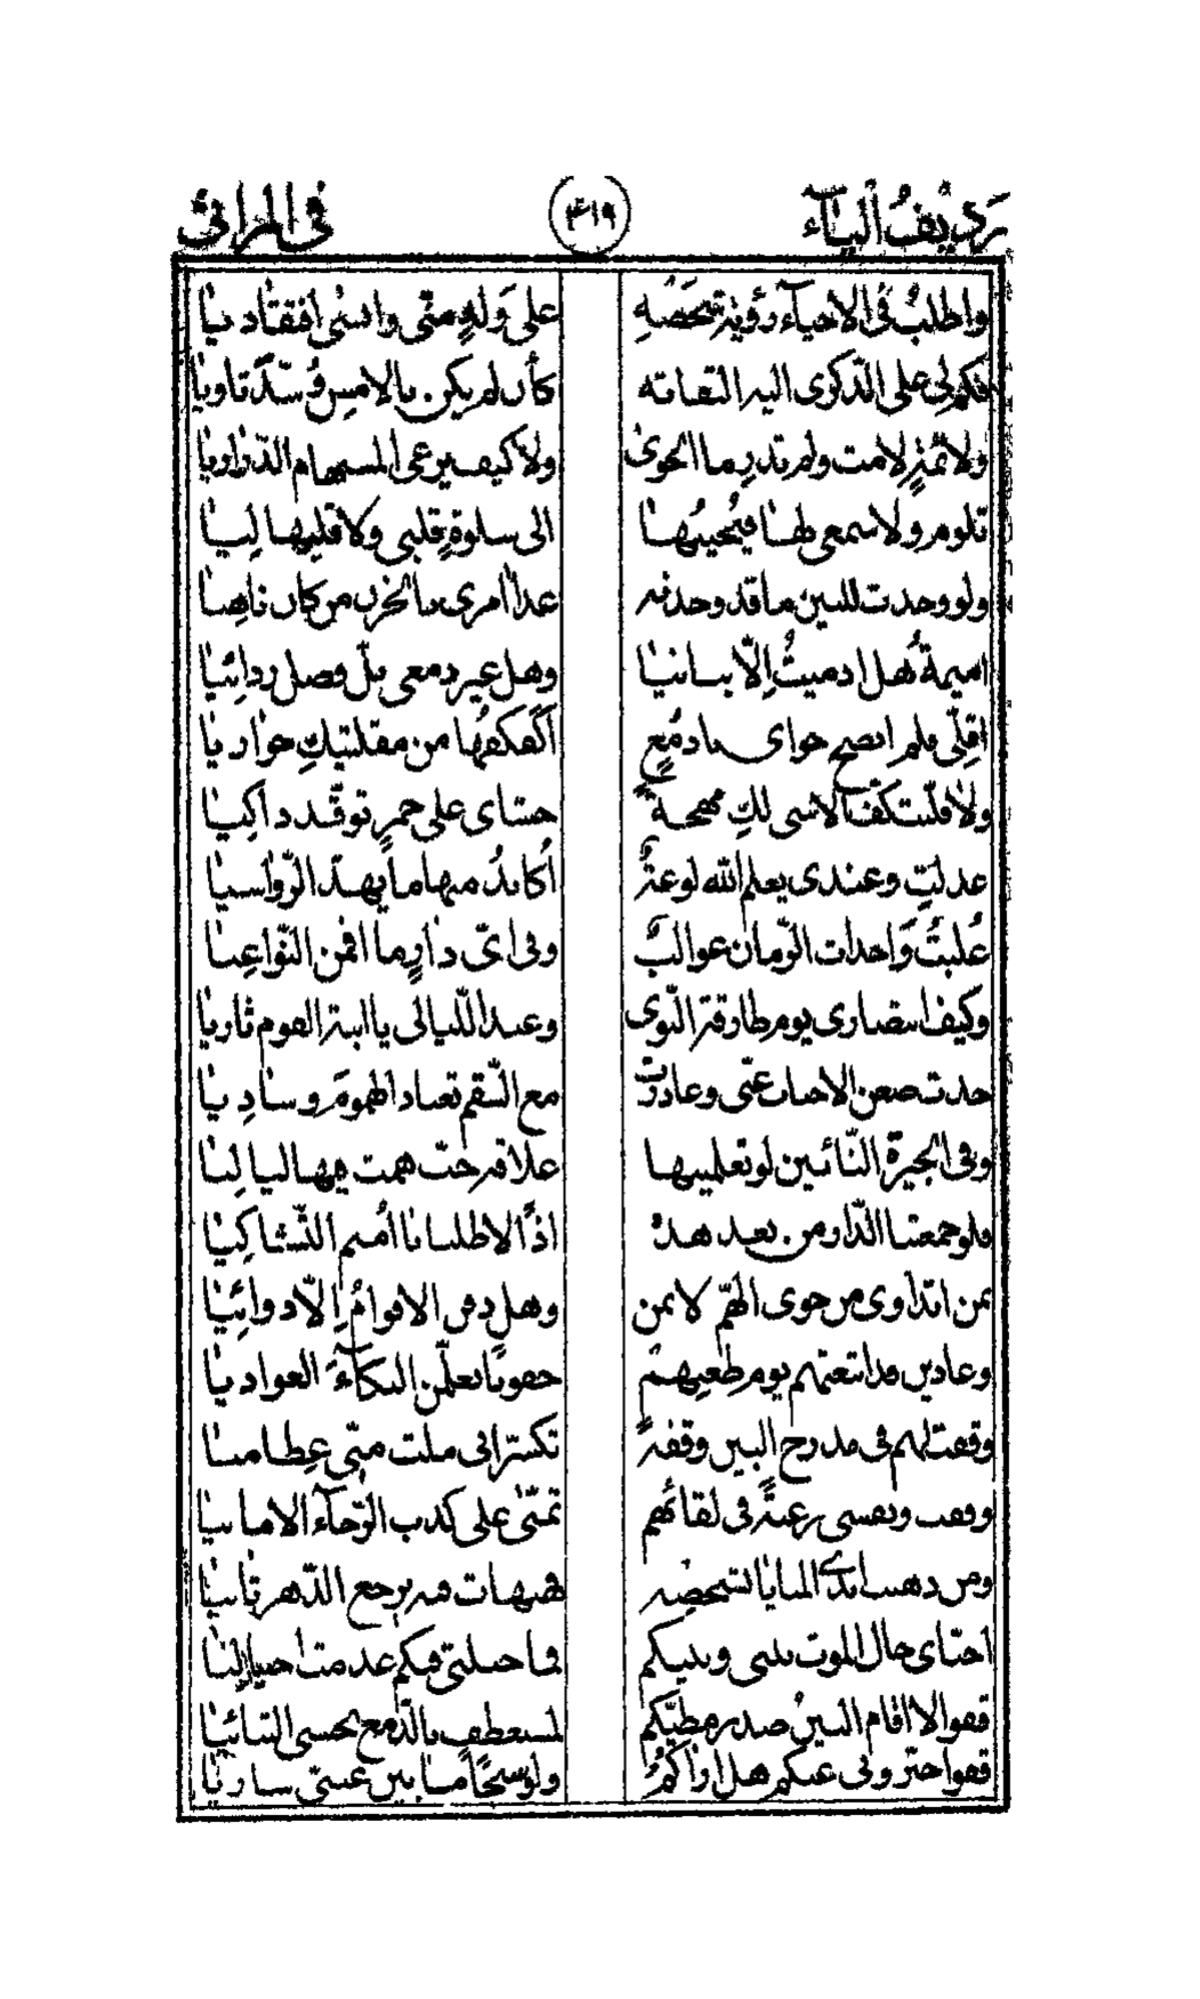 رديف الياء ٤١٩ في المراثي
واطلب في الاحياء رؤية شخصه على وله منّي وانسى افتقاديا
فكم لي على الذكرى اليه التفاتة كأن لم يكن بالامس وسّد تاويا
ولائمة لامت ولم تدر ما الجوى ولا كيف يرعى المستهام الدراريا
تلوم ولا سمعي لها فيجيبها الى سلوة قلبي ولا قلبها ليا
ولو وجدت للبين ما قد وجدته غدا امري بالحزن من كان ناهيا
اميمة هل ادميت إلّا بنانيا وهل غير دمعي بلّ فضل ردائيا
اقلّي فلم انضح جواي بادمع أكفكفها من مقلتيك جواريا
ولا قلّبت كفّ الاسى لك مهجة حشاي على جمر توقّد ذاكيا
عذلت وعندي يعلم الله لوعة أكابد منها ما يهدّ الرّواسيا
غلبت واحداث الزّمان غوالب وفي ايّ دار ما اقمن النّواعيا
وكيف انتصاري يوم طارقة النّوى وعند اللّيالي يا ابنة القوم ثاريا
حدت ظعن الاحباب عنّي وغادرت مع السّقم تعتاد الهموم وساديا
وفي الجيرة النّائين لو تعلمينها علاقة حبّ همت فيها لياليا
فلو جمعتنا الدّار من بعد هذه اذًا لاطلنا يا أميم التّشاكيا
بمن اتداوى من جوى الهمّ لا بمن وهل دمن الاقوام إلّا دوائيا
وغادين قد اتبعتهم يوم ظعنهم جفونًا تعلّمن البكاء الغواديا
وقفت لهم في مدرج البين وقفة تكسّر انّى ملت منّي عظاميا
وقفت ونفسي رغبة في لقائهم تمنّى على كذب الرّجاء الامانيا
ومن ذهبت ايدي المنايا بشخصه فهيهات فيه يرجع الدّهر ثانيا
احبّاي حال الموت بيني وبينكم فما حيلتي فيكم عدمت احتياليا
قفوا لا اقام البين صدر مطيّكم لمستعطف بالدّمع يحسي التنائيا
قفوا خبّروني عنكم هل اراكم ولو سبحًا ما بين عينيّ ساريا